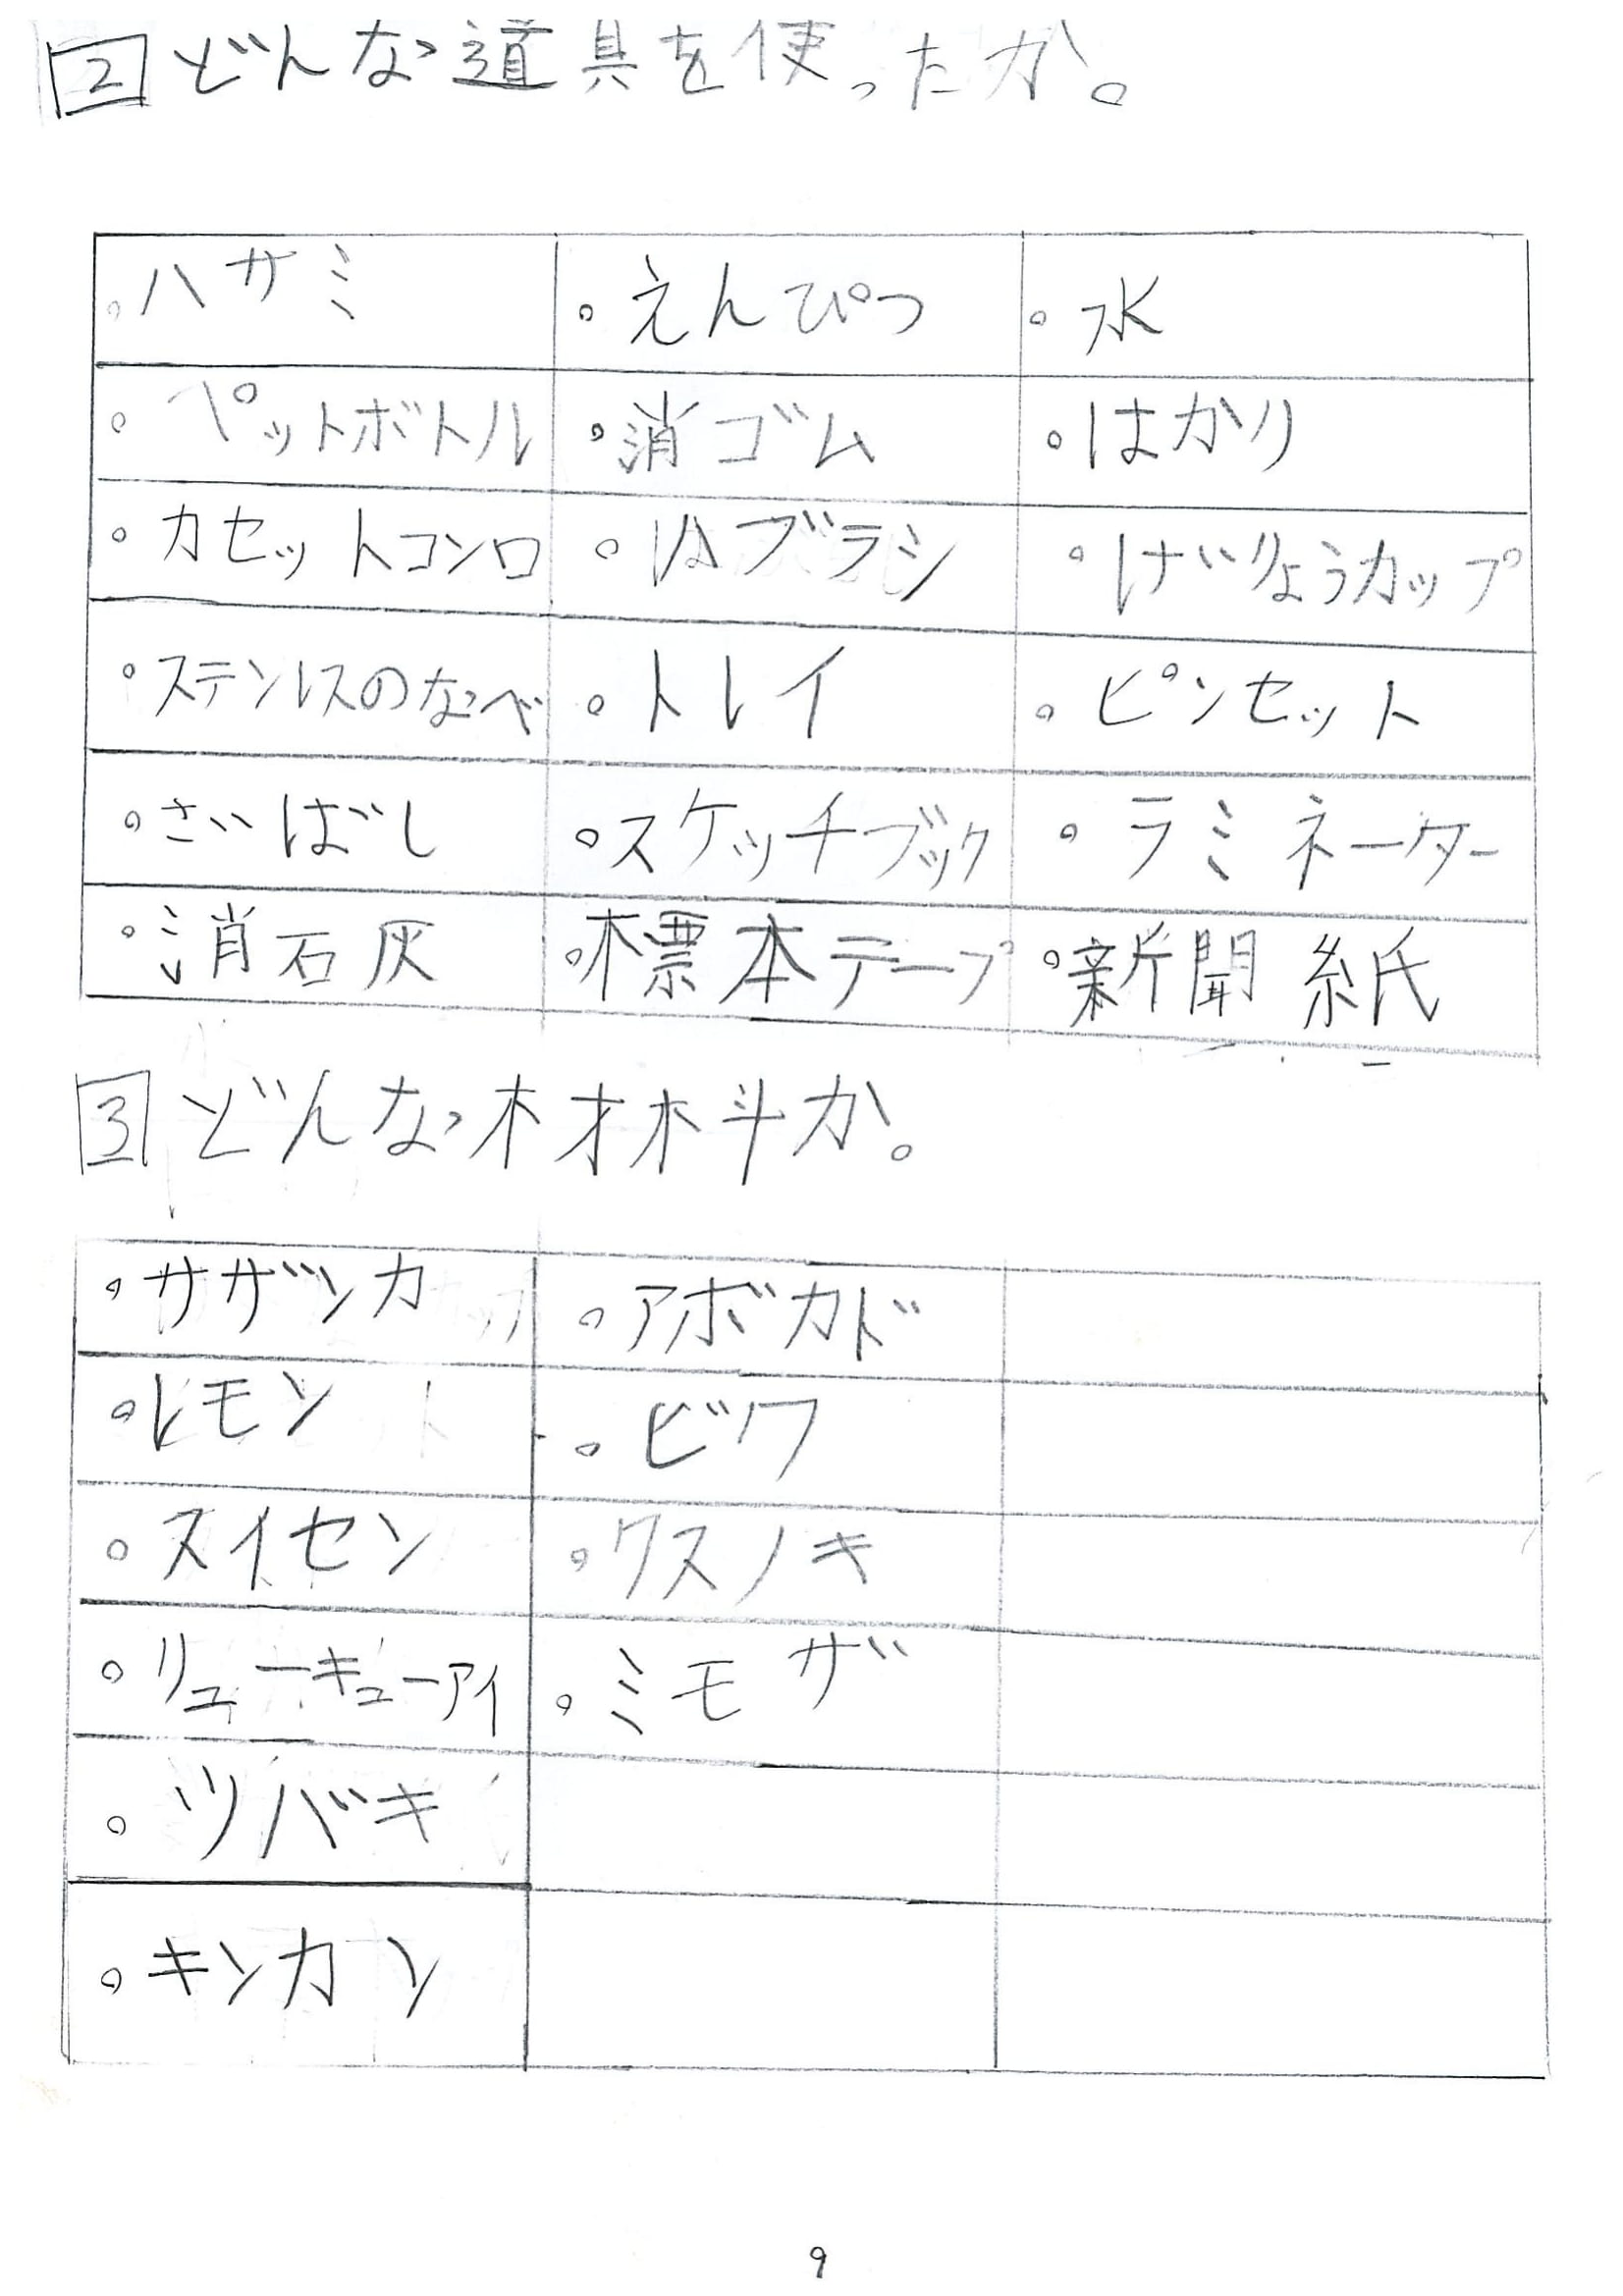 2 どんな道具を使ったか。
。ハサミ 。えんぴつ 。水
。ペットボトル 。消ゴム 。はかり
。カセットコンロ 。はブラシ 。けいりょうカップ
。ステンレスのなべ 。トレイ 。ピンセット
。さいばし 。スケッチブック 。ラミネーター
。消石灰 。標本テープ 。新聞紙
3 どんな材料か。
。サザンカ 。アボカド
。レモン 。ビワ
。スイセン 。クスノキ
。リューキューアイ 。ミモザ
。ツバキ
。キンカン
9